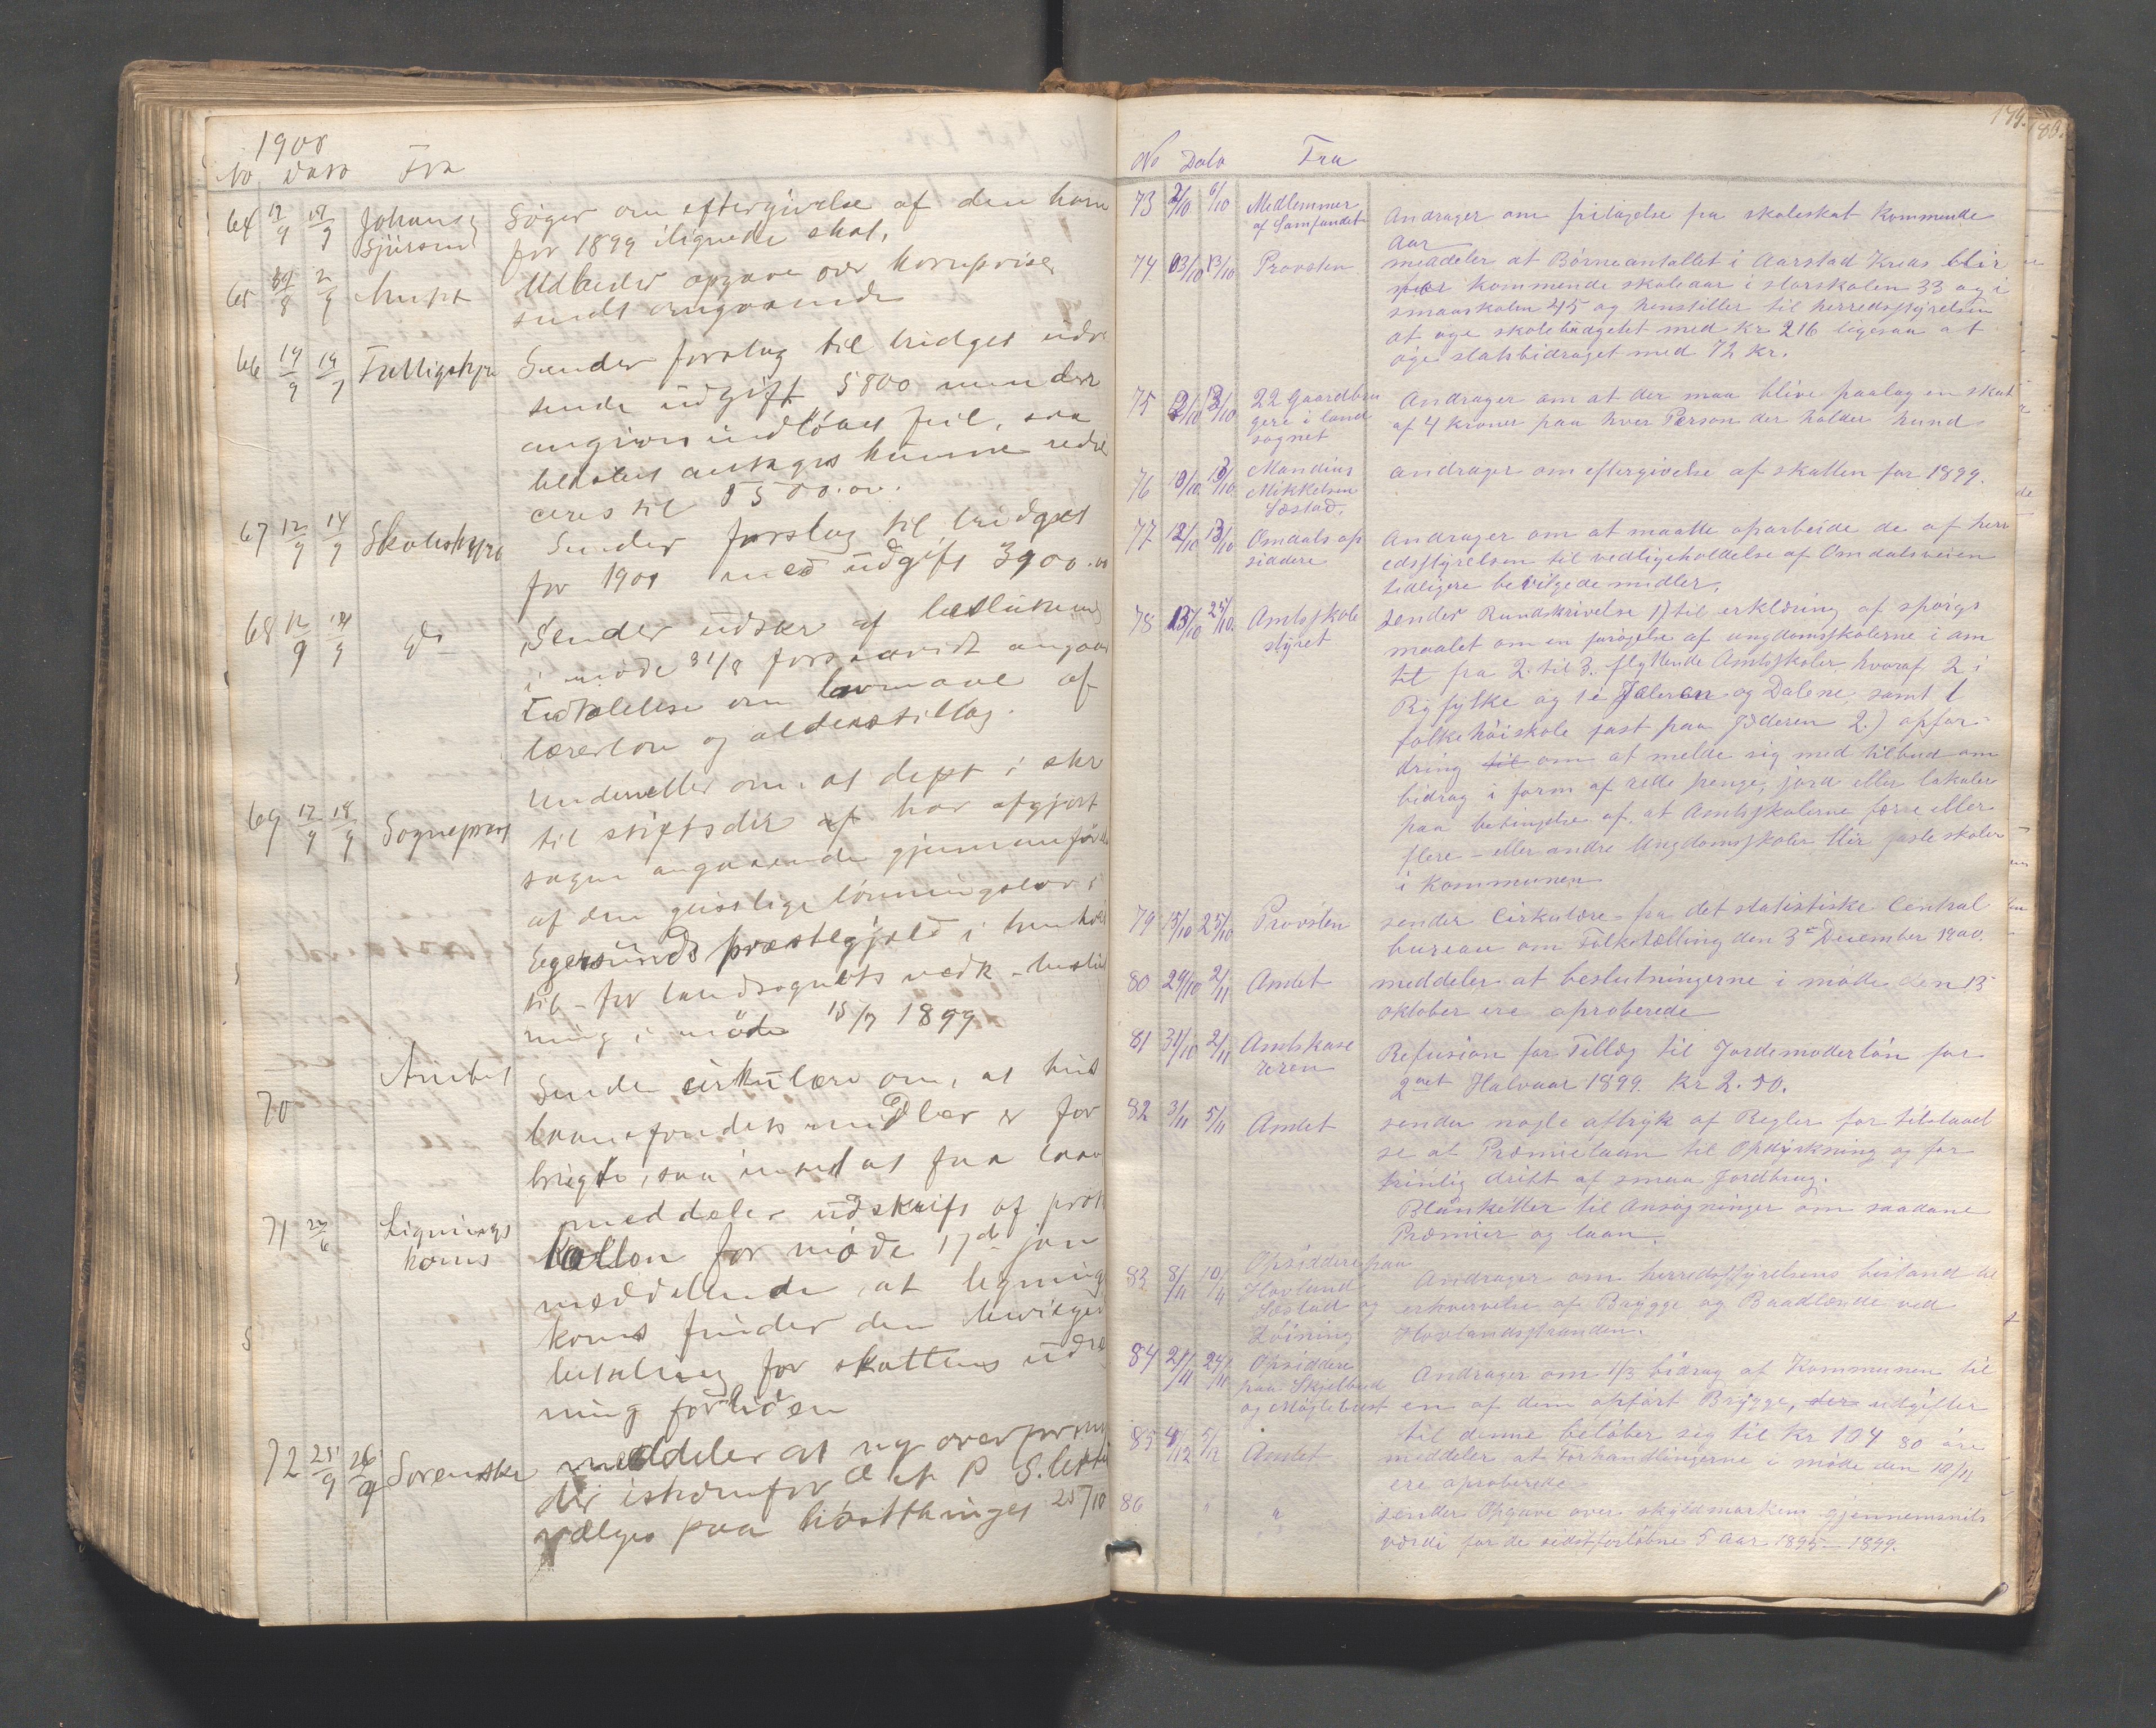 1900
No Dato Fra
64 17/9 17/9 Johans Sjursen Søger om eftergivelse af den ham
for 1899 ilignede skat.
65 30/8 2/9 Amtet Udbeder opgave over kornpriser
sendt angaaende
66 14/9 14/9 Fattigstyre Sender forslag til budget udvi
sende udgift 5800 men den
angiven indløbet feil, saa
beløbet antages kunne redu
ceres til 5500.00.
67 12/9 14/9 Skolestyre Sender forslag til budget
for 1901 med udgift 3900.00
68 12/9 14/9 do Sender udskr af beslutning
i møde 31/8 forsaavidt angaar
Udtalelse om lovmaal af
lærerløn og alderstillæg.
69 17/9 18/9 Sognepræst Underretter om, at dept i skr
til stiftsdir af har afgjort
sagen angaaende gjennemføre
af den geistlige lønningslov i
Egersunds præstegjeld i henhold
til - for landsognets vedk - beslut
ning i møde 15/7 1899
70 Amtet Sender cirkulære om, at hus
laanefondets midler er for
brugte, saa umuel at faa laan
71 27/6 Lignings
koms meddeler udskrift af proto
kollen for møde 17de jan
meddelende, at ligning
koms finder den bevilgede
betaling for skattens udreg
ning for liden
72 25/9 26/9 Sorenskr meddeler at ny overformyn
der istedenfor C A P S. Leth
vælges paa høstthinget 25/10
179. 180.
No Dato Fra
73 2/10 6/10 Medlemmer
af Samfundet Andrager om fritagelse fra skoleskat kommende
Aar
74 13/10 13/10 Provsten meddeler at Børneantallet i Aarstad Kreds blir
for kommende skoleaar i storskolen 33 og i
smaaskolen 45 og henstiller til herredsstyrelsen
at øge skolebudgetet med kr 216 ligesaa at
øge statsbidraget med 72 kr.
75 12/10 13/10 22 Gaardbru
gere i land
sognet Andrager om at der maa blive paalag en skat
af 4 kroner paa hver Person der holder hund.
76 9/10 13/10 Mandius
Mikkelsen
Sæstad. andrager om eftergivelse af skatten for 1899.
77 12/10 13/10 Omdals op
siddere Andrager om at maatte oparbeide de af herr
edsstyrelsen til vedligeholdelse af Omdalsveien
tidligere bevilgede midler.
78 15/10 25/10. Amtsskole
styret sender Rundskrivelse 1) til erklæring af spørgs
maalet om en forøgelse af ungdomsskolerne i am
tet fra 2 til 3 flyttende Amtsskoler, hvoraf 2 i
Ryfylke og 1 i Jæderen og Dalene, samt 1
folkehøiskole fast paa Jæderen 2.) opfor-
dring til om at melde sig med tilbud om
bidrag i form af rede penge, jord eller lokaler
paa betingelse af, at Amtsskolerne færre eller
flere - eller andre Ungdomsskoler blir faste skoler
i Kommunen
79 15/10 25/10 Provsten sender Cirkulære fra det statistiske Central
bureau om Folketælling den 3de December 1900.
80 29/10 2/11 Amtet meddeler at beslutningerne i møde den 13
oktober ere aproberede
81 31/10 2/11 Amtskasse
reren Refusion for Tillæg til Jordemoderløn for
2net Halvaar 1899. Kr 2.50.
82 3/11 5/11 Amtet sender nogle aftryk af Regler for tilstaael
se af Præmielaan til Opdyrkning og for
trinlig drift af smaa Jordbrug.
Blanketter til Ansøgninger om saadane
Præmier og laan.
83 8/11 10/11 Opsiddere paa
Hovland
Sæstad og
Løining Andrager om herredsstyrelsens bistand til
erhvervelse af Brygge og Baadlænde ved
Hovlandsstranden.
84 21/11 24/11 Opsiddere
paa Skjelbred
og Møglebust Andrager om 1/3 bidrag af Kommunen til
en af dem opført Brygge, der udgifter
til denne beløber sig til Kr 104 80 øre
85 4/12 5/12 Amtet meddeler at Forhandlingerne i møde den 10/11
ere aproberede
86 " " sender Opgave over skyldmarkens gjennemsnits
værdi for de sidst forløbne 5 Aar 1895-1899.